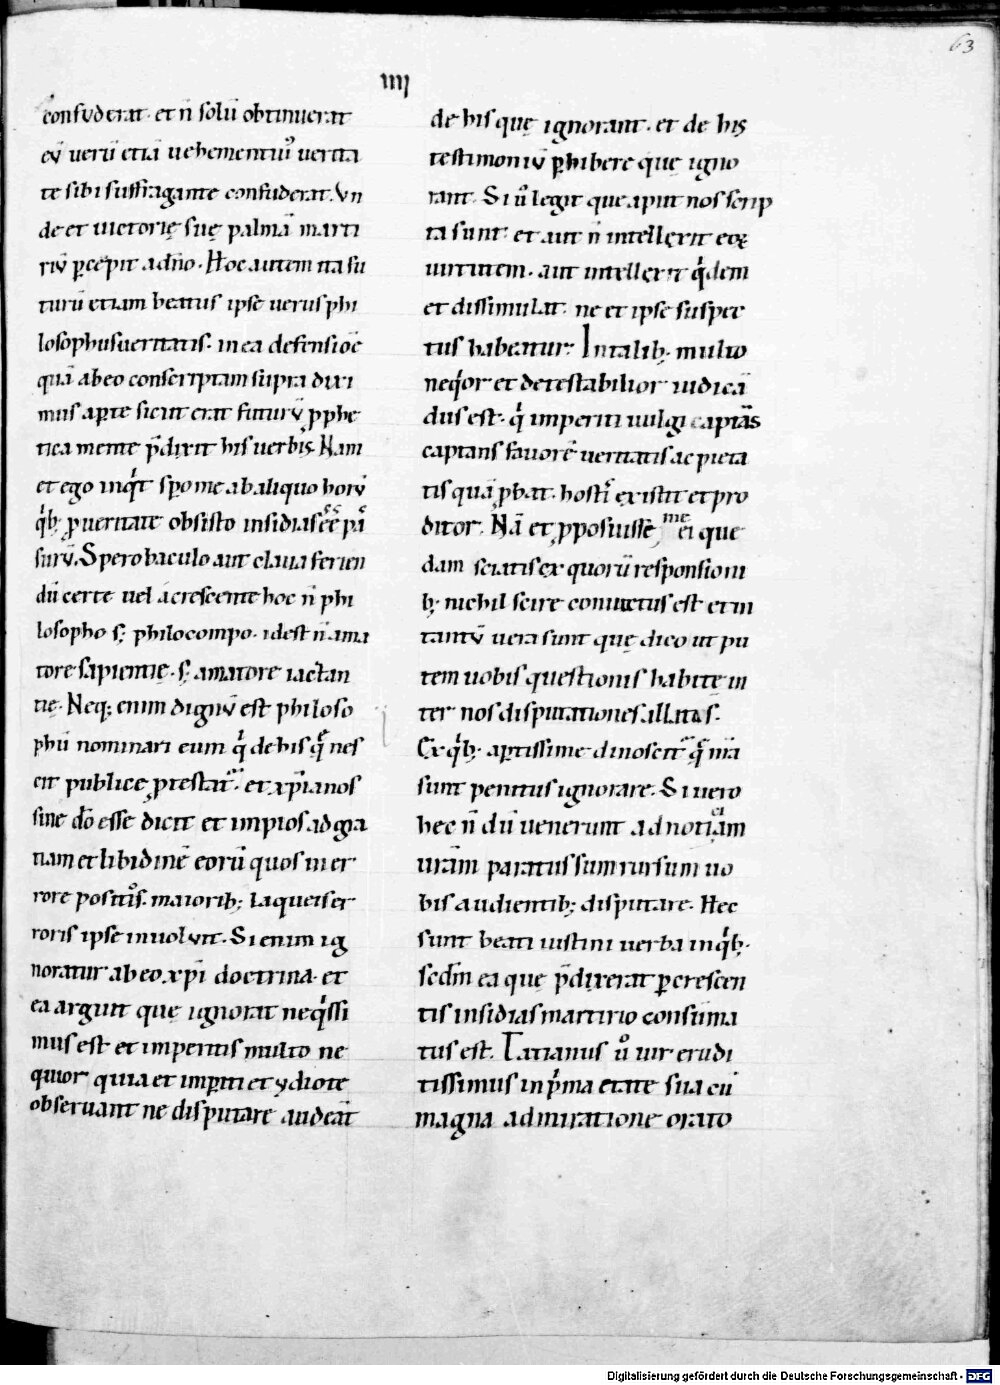 63
IIII
confuderat· et n̄ solū obtinuerat
eū uerū etiā uehementiuˀ uerita
te sibi suffragante confuderat. Vn
de et uictorię suę palmā marti
riū p̱cepit adn̄o. Hoc autem ita fu
turū etiam beatus ipse uerus phi
losophus ueritatis. in ea defensiōe
quā ab eo conscriptam supra dixi
mus aꝑte sicut erat futurū ꝓphe
tica mente p̄dixit his uerbis. Nam
et ego inqͥt spero me ab aliquo horū
qͥb; ꝓ ueritate obsisto insidias eē̄ pas
surū. Spero baculo aut claua ferien
dū certe uel a crescente hoc n̄ phi
losopho s; philocompo. id est n̄ ama
tore sapientię. s; amatore iactan
tię. Neq; enim dignū est philoso
phū nominari eum qͥ de his q̄ nes
cit publice prestat᷑. et xp̄ianos
sine dō esse dicit et impios ad gr̄a
tiam et libidinē eorū quos in er
rore positˀos. maiorib; laqueis er
roris ipse inuoluit. Si enim ig
noratur ab eo xp̄i doctrina. et
ea arguit quę ignorat neqͥssi
mus est et imperitis multo ne
quior quia et imꝑiti et ydiote
obseruant ne disputare audeāt
de his quę ignorant. et de his
testimoniū ꝑhibere que igno
rant. Si u̾ legit que aput nos scrip
ta sunt· et aut n̄ intellexit eoꝝ
uirtutem. aut intellexit qͥdem
et dissimulat. ne et ipse suspec
tus habeatur. In talib; multo
neqͥor et detestabilior iudicā
dus est. qͥ imperiti uulgi captās
captans fauorē ueritatis ac pieta
tis quā ꝓbat. hostiˢ existit et pro
ditor. Nā et ꝓposuisse me ei que
dam sciatis ex quorū responsioni
b; nichil scire conuictus est et in
tantū uera sunt quę dico ut pu
tem uobis questionis habite in
ter nos disputationes illatas.
Ex qͥb; aꝑtissime dinoscit᷑ q̄ nr̄a
sunt penitus ignorare. Si uero
hec n̄ dū uenerunt ad noticiam
urām paratus sum rursum uo
bis audientib; disputare. Hec
sunt beati iustini uerba in qͥb;
scdm̄ ea quę p̄dixerat ꝑ crescen
tis insidias martirio consūma
tus est. Tatianus u̾ uir erudi
tissimus in pͥma etate sua cū
magna admiratione orato
Digitalisierung gefördert durch die Deutsche Forschungsgemeinschaft - DFG